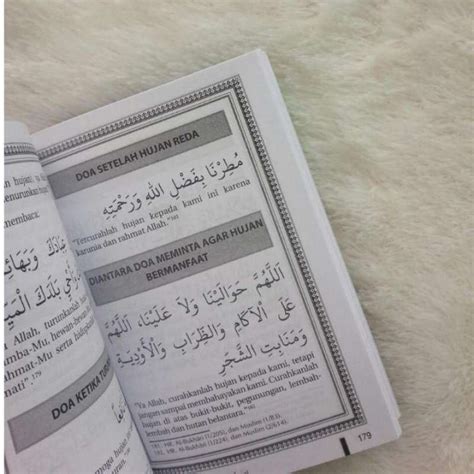 DOA SETELAH HUJAN REDA
مُطِرْنَا بِفَضْلِ اللهِ وَرَحْمَتِهِ
"Tercurahlah hujan kepada kami ini karena
karunia dan rahmat Allah."
DIANTARA DOA MEMINTA AGAR HUJAN
BERMANFAAT
اَللَّهُمَّ حَوَالَيْنَا وَلاَ عَلَيْنَا، اَللَّهُمَّ
عَلَى الْآكَامِ وَالظِّرَابِ وَالْأَوْدِيَةِ
وَمَنَابِتِ الشَّجَرِ
"Ya Allah, curahkanlah hujan kepada kami, tetapi
jangan sampai membahayakan kami. Curahkanlah
hujan di atas bukit-bukit, pegunungan, lembah-
lembah dan hutan belantara."
HR. Al-Bukhari dan Muslim
HR. Al-Bukhari dan Muslim
179
hujan
menurunkan
membaca:
عِبَادَكَ وَبَهَائِ
بَلَدَكَ الْمَيِّ
Allah, turunkanlah
hamba-Mu, hewan-hewan
rahmat-Mu serta hidupkan
mati".
DOA KETIKA
semoga hujan